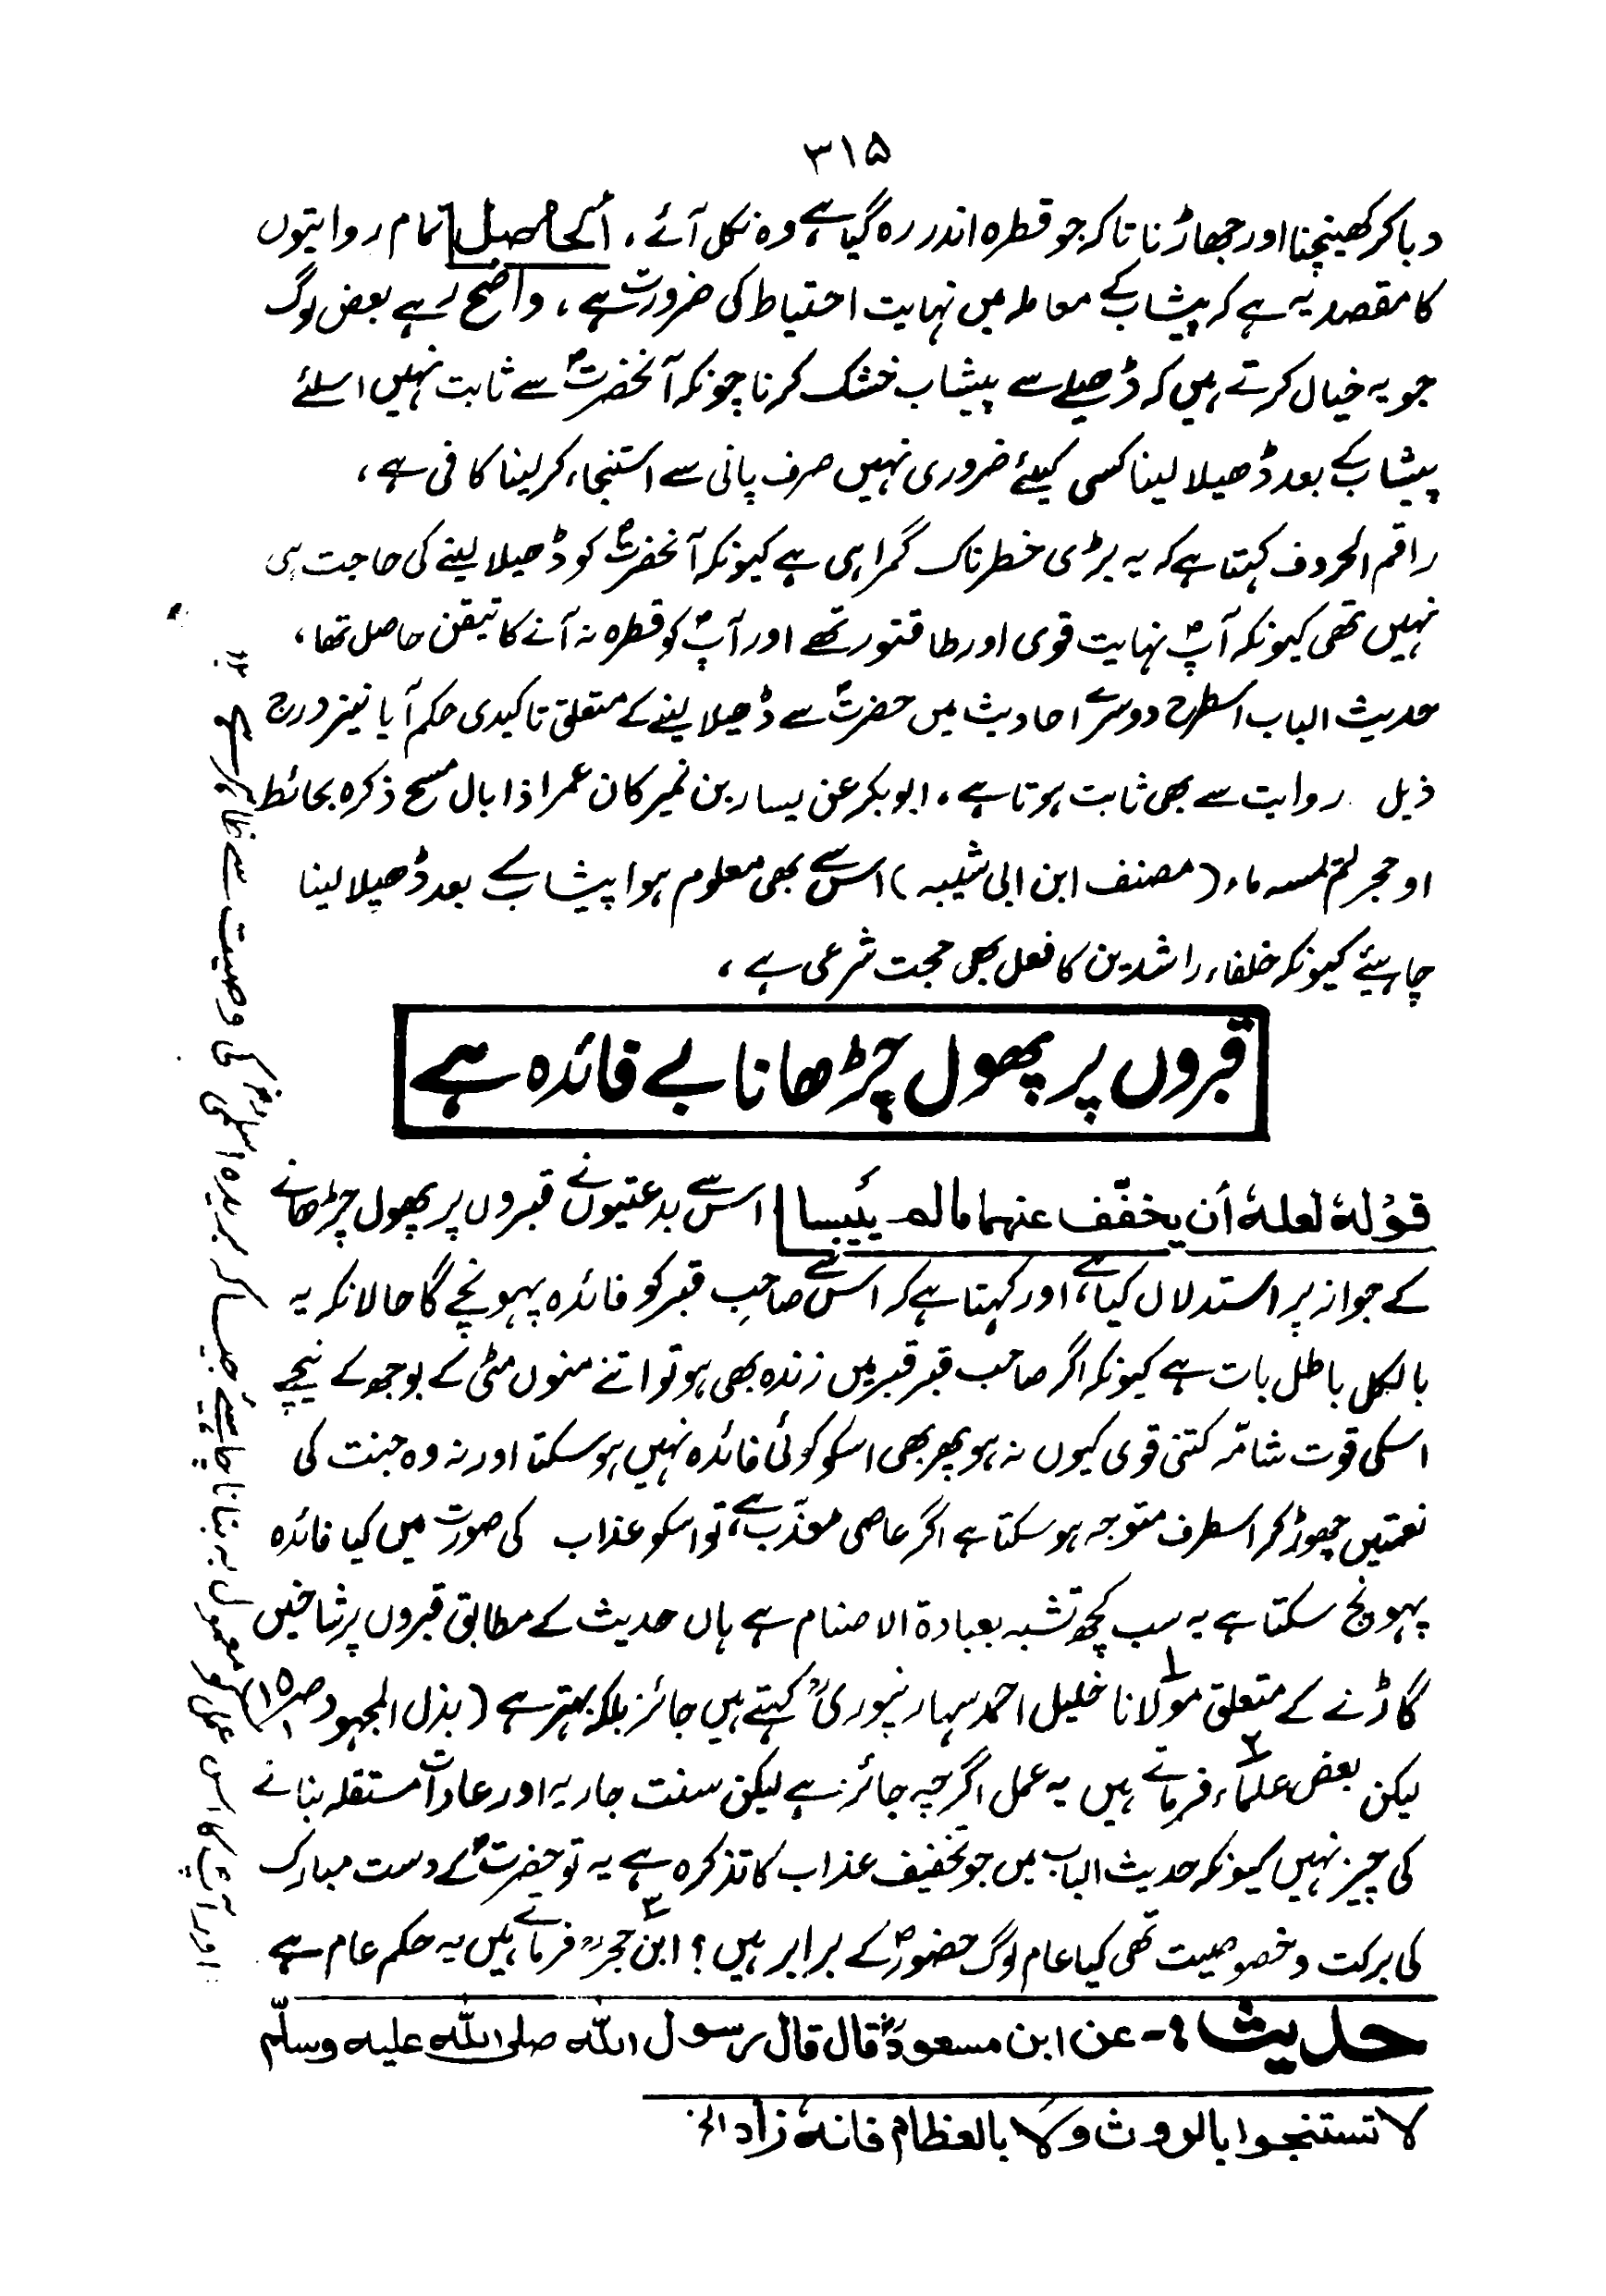 ۳۱۵
دباکر کھینچنا اور جھاڑنا تاکہ جو قطرہ اندر رہ گیا ہے وہ نکل آئے، ألحاصل تمام روایتوں
کا مقصد یہ ہے کہ پیشاب کے معاملہ میں نہایت احتیاط کی ضرورت ہے، واضح رہے بعض لوگ
جو یہ خیال کرتے ہیں کہ ڈھیلے سے پیشاب خشک کرنا چونکہ آنحضرتؐ سے ثابت نہیں اسلئے
پیشاب کے بعد ڈھیلا لینا کسی کیلئے ضروری نہیں صرف پانی سے استنجاء کرلینا کافی ہے،
راقم الحروف کہتا ہے کہ یہ بڑی خطرناک گمراہی ہے کیونکہ آنحضرتؐ کو ڈھیلا لینے کی حاجت ہی
نہیں تھی کیونکہ آپؐ نہایت قوی اور طاقتور تھے اور آپؐ کو قطرہ نہ آنے کا تیقن حاصل تھا،
حدیث الباب اسطرح دوسرے احادیث میں حضرتؐ سے ڈھیلا لینے کے متعلق تاکیدی حکم آیا نیز درج
ذیل روایت سے بھی ثابت ہوتا ہے، ابوبکر عن یسار بن نمیر کان عمر اذا بال مسح ذکرہ بحائط
او حجر لم یمسہ ماء (مصنف ابن ابی شیبہ) اس سے بھی معلوم ہوا پیشاب کے بعد ڈھیلا لینا
چاہیئے کیونکہ خلفاء راشدین کا فعل بھی حجت شرعی ہے،
قبروں پر پھول چڑھانا بے فائدہ ہے
قولہٗ لعلہٗ أن یخفّف عنہما مالم ییبسا اس سے بدعتیوں نے قبروں پر پھول چڑھانے
کے جواز پر استدلال کیا ہے، اور کہتا ہے کہ اس سے صاحبِ قبر کو فائدہ پہونچے گا حالانکہ یہ
بالکل باطل بات ہے کیونکہ اگر صاحب قبر قبر میں زندہ بھی ہو تو اتنے منوں مٹی کے بوجھ کے نیچے
اسکی قوت شامّہ کتنی قوی کیوں نہ ہو پھر بھی اسکو کوئی فائدہ نہیں ہوسکتا اور نہ وہ جنت کی
نعمتیں چھوڑ کر اسطرف متوجہ ہوسکتا ہے اگر عاصی معذّب ہے، تو اسکو عذاب کی صورت میں کیا فائدہ
پہونچ سکتا ہے یہ سب کچھ تشبہ بعبادۃ الاصنام ہے ہاں حدیث کے مطابق قبروں پر شاخیں
گاڑنے کے متعلق ۱ مولانا خلیل احمد سہارنپوریؒ کہتے ہیں جائز بلکہ بہتر ہے (بذل المجہود ص۱۵/۱)
لیکن ۲ بعض علماء فرماتے ہیں یہ عمل اگرچہ جائز ہے لیکن سنت جاریہ اور عادات مستقلہ بنانے
کی چیز نہیں کیونکہ حدیث الباب میں جو تخفیف عذاب کا تذکرہ ہے یہ تو حضرتؐ کے دست مبارک
کی برکت و خصوصیت تھی کیا عام لوگ حضورؐ کے برابر ہیں؟ ۳ ابن حجرؒ فرماتے ہیں یہ حکم عام ہے
اور آج کا اس عمل کو معمول بہ بنانا چاہیئے جیسا کہ بریدہ اسلمیؓ کی وصیت سے ظاہر ہے ۱۲
حدیث :- عن ابن مسعودؓ قال قال رسول اللہ صلی اللہ علیہ وسلّم
لا تستنجوا بالروث ولا بالعظام فانہٗ زاد الخ